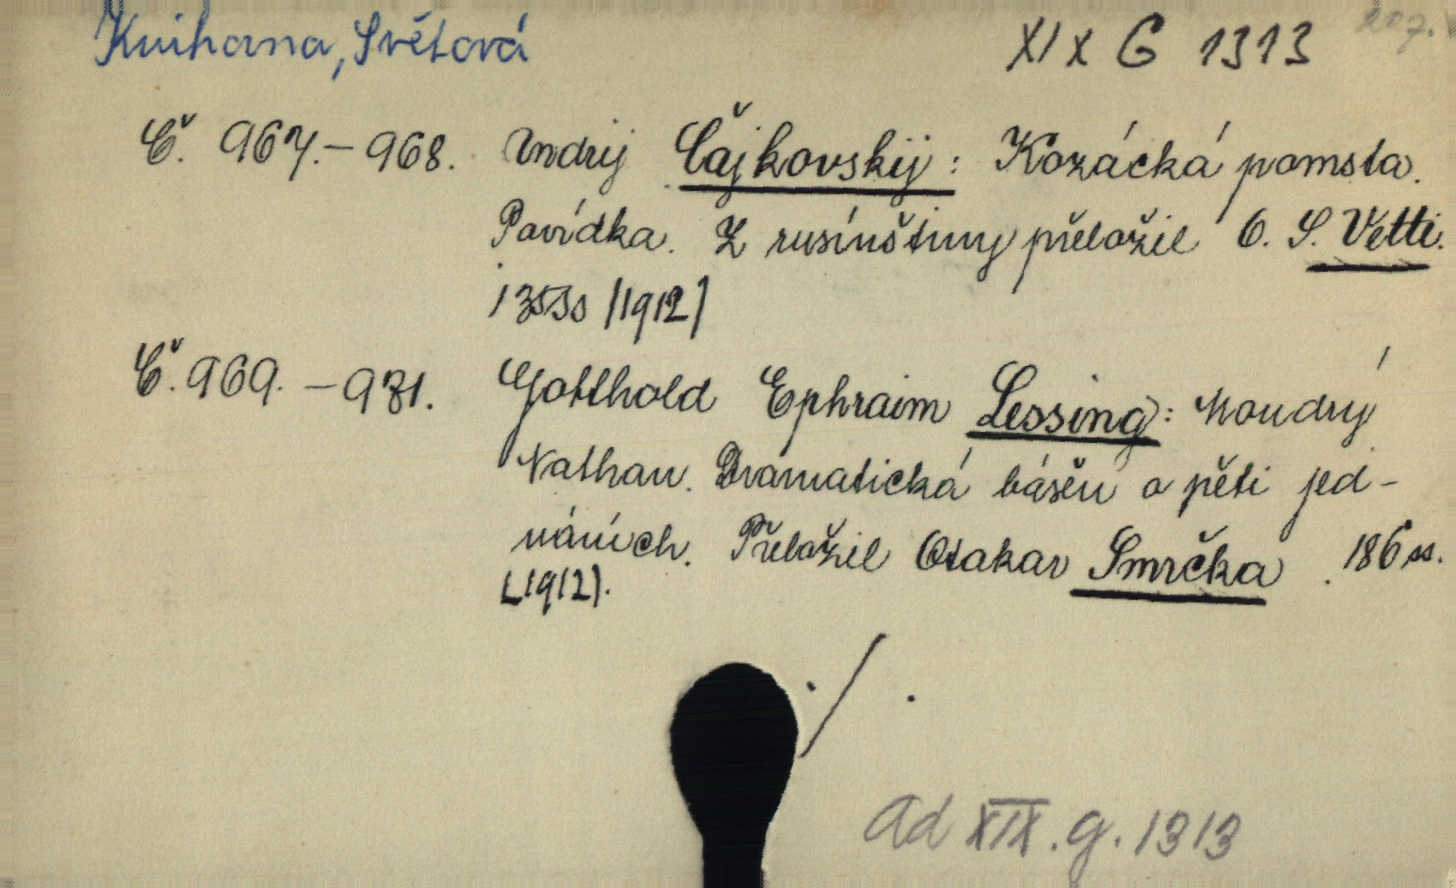 Knihovna, Světová XIX G 1313 207.
Č. 967.–968. Andrij Čajkovskij: Kozácká pomsta.
Povídka. Z rusínštiny přeložil O. S. Vetti.
135 ss (1912)
Č. 969.–971. Gotthold Ephraim Lessing: Moudrý
Nathan. Dramatická báseň o pěti jed-
náních. Přeložil Otakar Smrčka. 186 ss.
(1912).
./.
Ad XIX. g. 1313